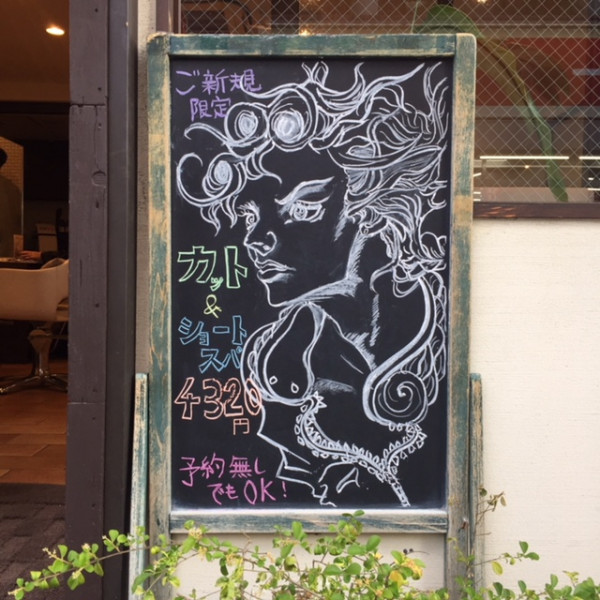 ご新規
限定
カット
&
ショート
スパ
4320
円
予約無し
でもOK!